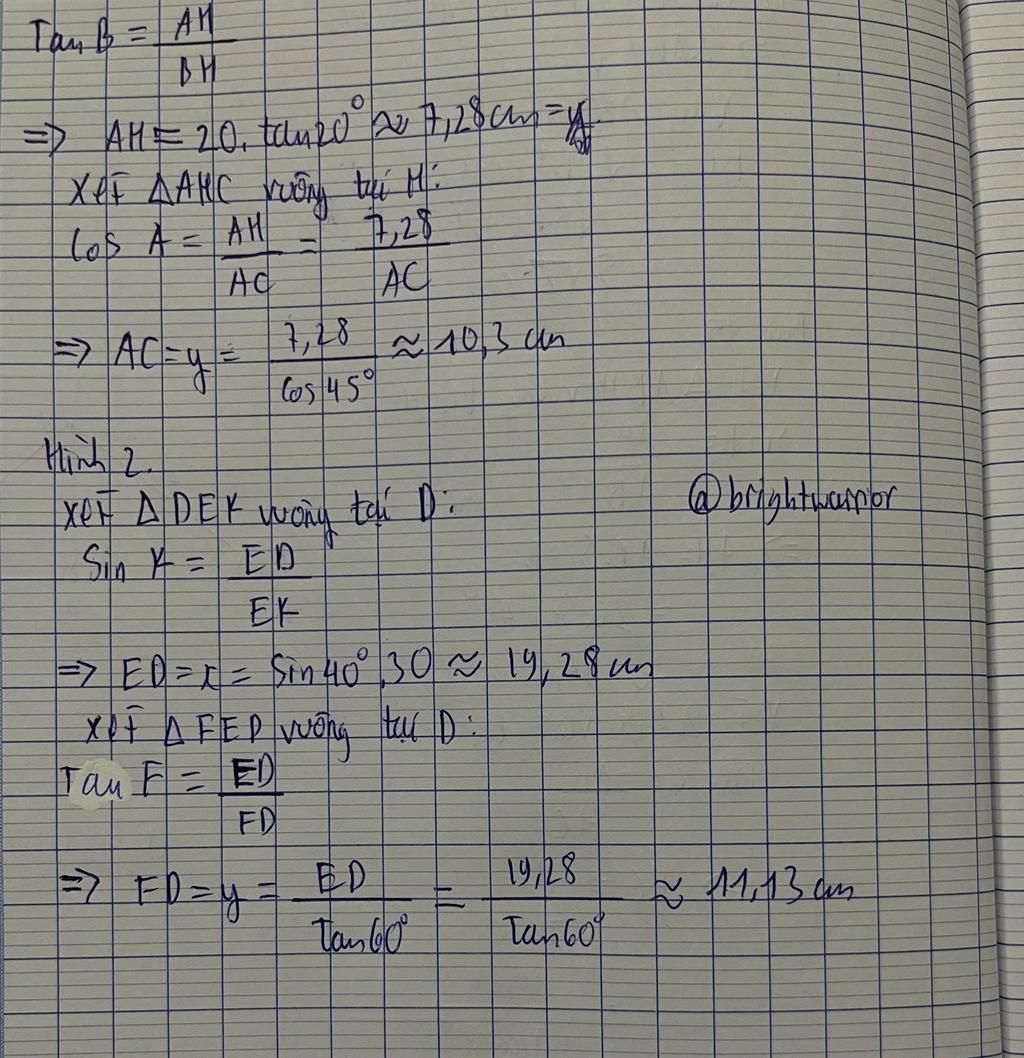 Tan B = AH/BH
=> AH = 20. tan20° ≈ 7,28cm =
xét ΔAHC vuông tại H:
Cos A = AH/AC = 7,28/AC
=> AC = y = 7,28/Cos45° ≈ 10,3 cm
Hình 2.
xét ΔDEK vuông tại D:
@brightwarrior
Sin K = ED/EK
=> ED = x = Sin40°.30 ≈ 19,28cm
xét ΔFED vuông tại D:
Tan F = ED/FD
=> FD = y = ED/Tan60° = 19,28/Tan60° ≈ 11,13cm